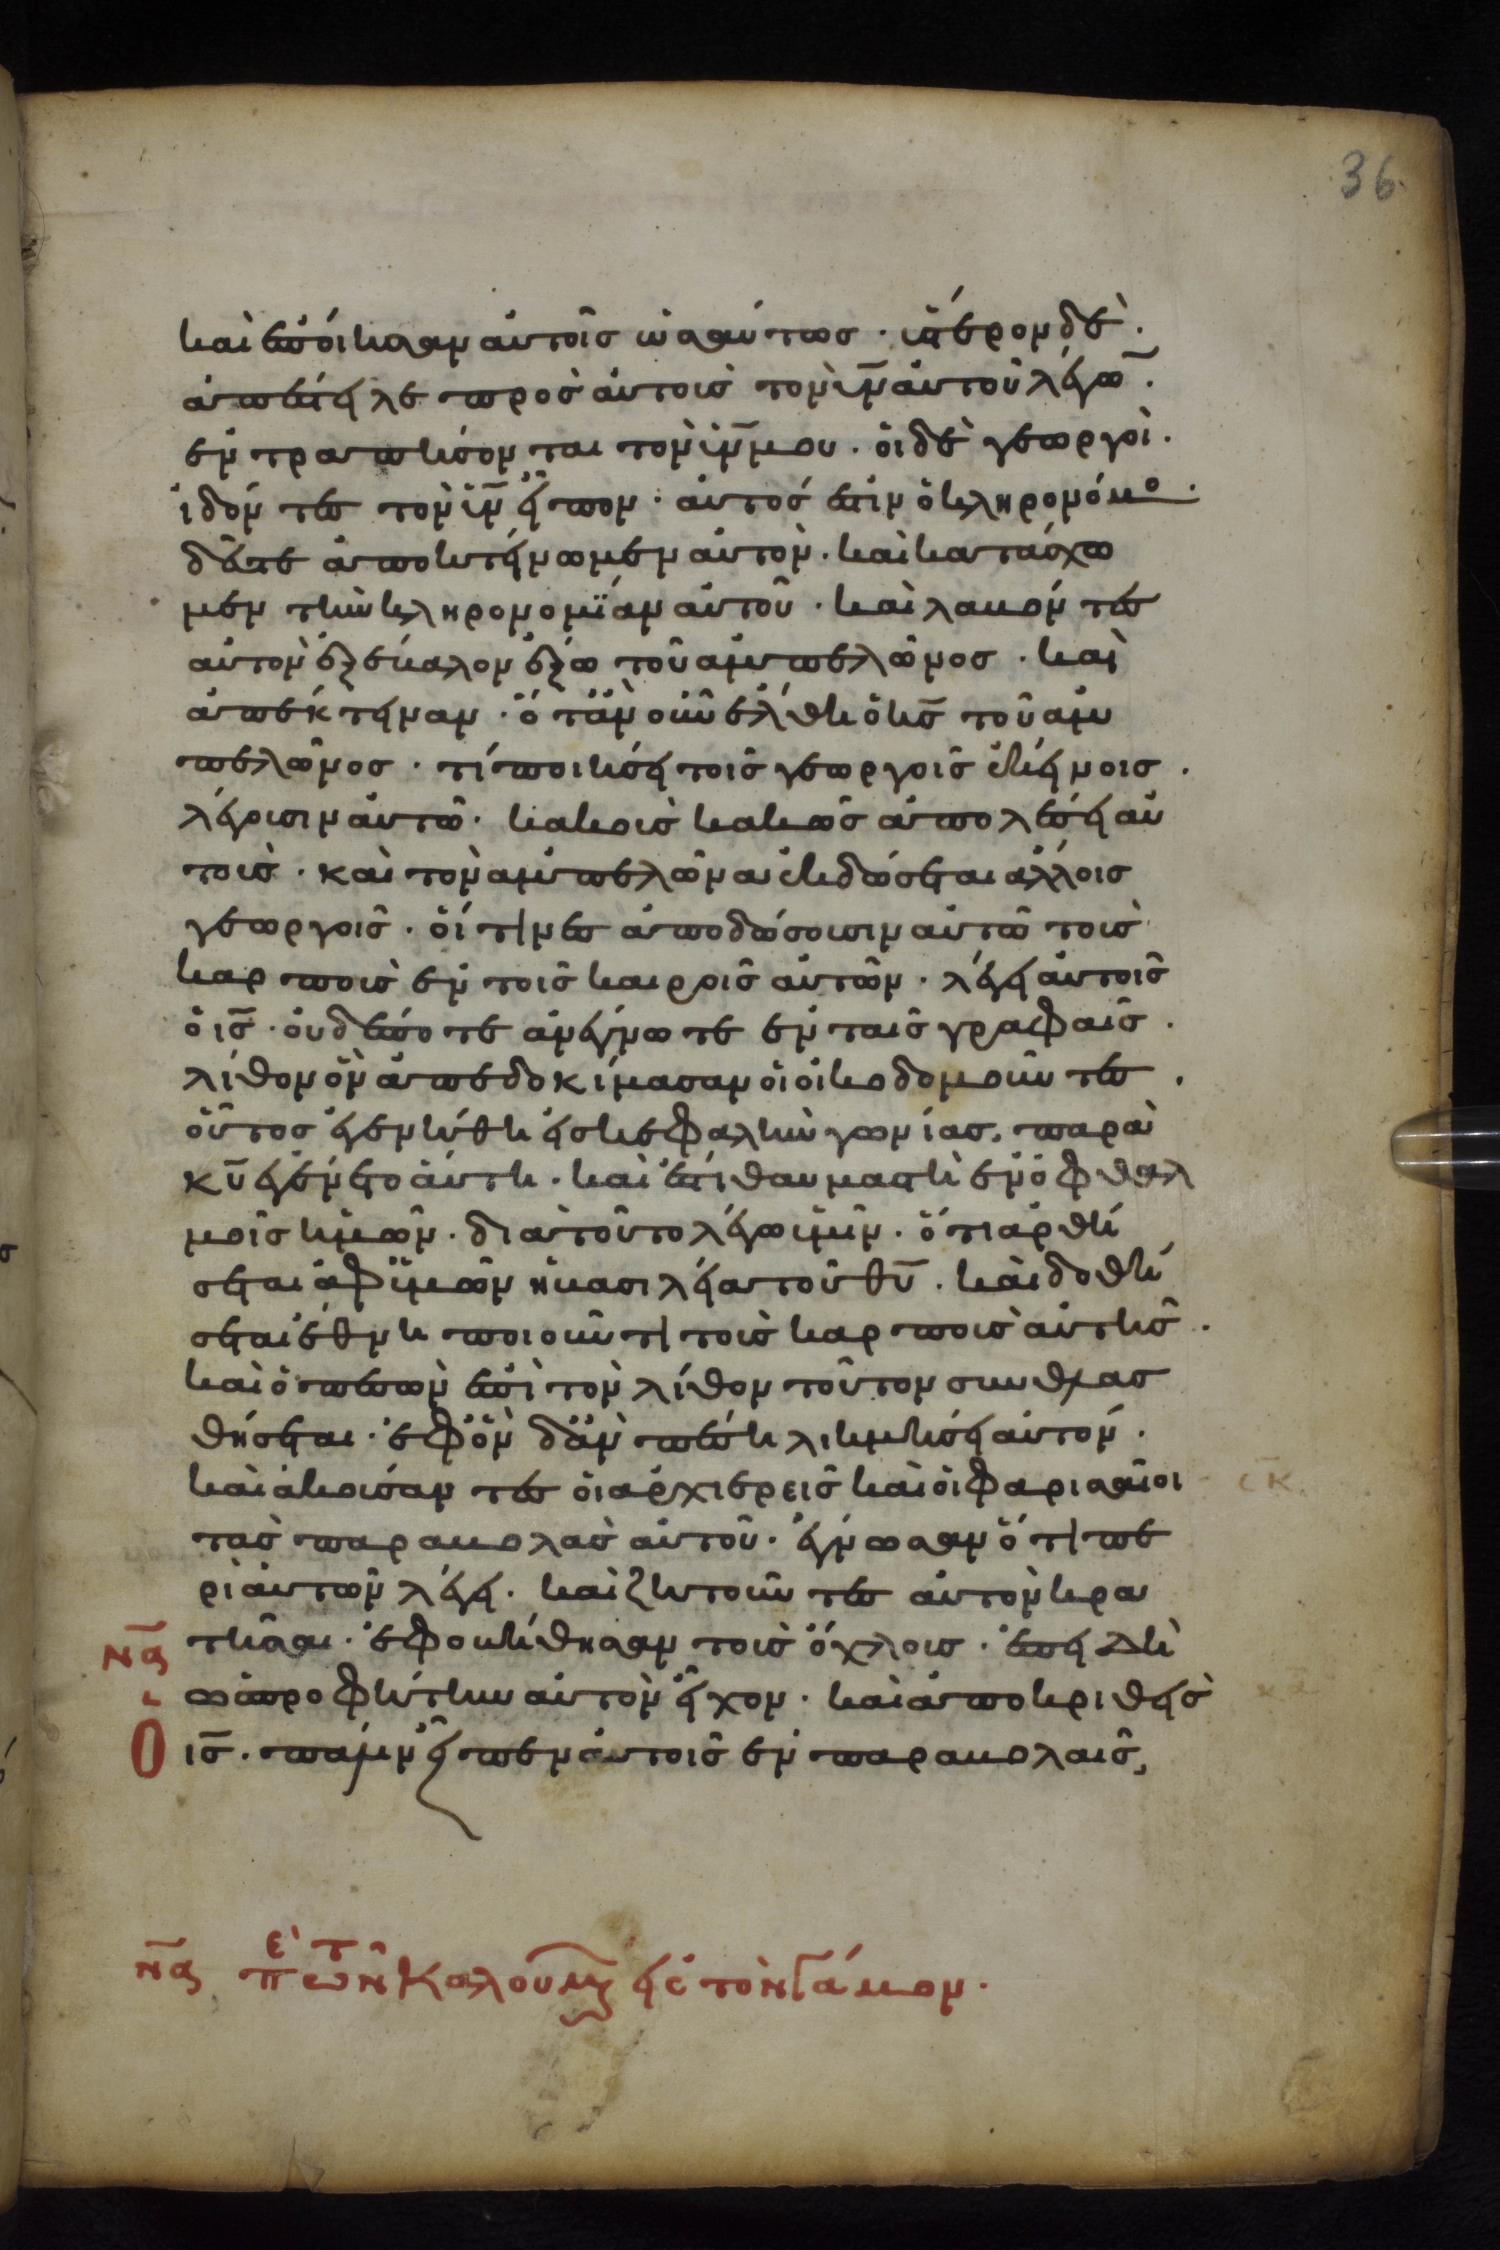 36
καὶ ἐποίησαν αὐτοῖς ὡσαύτως · ὕστερον δὲ ·
ἀπέστειλε πρὸς αὐτοὺς τὸν ῡν αὐτοῦ λέγω̄ ·
ἐντραπήσονται τὸν ῡν μου · οἱ δὲ γεωργοὶ ·
ἰδόντες τὸν ῡν εἶπον · αὐτός ἐστιν ὁ κληρονόμο ·
δεῦτε ἀποκτείνωμεν αὐτὸν · καὶ κατάσχω
μεν τὴν κληρονομϊάν αὐτοῦ · καὶ λαβόντες
αὐτὸν ἐξέβαλον ἔξω τοῦ ἀμπελῶνος · καὶ
ἀπέκτειναν · ὅταν οὖν ἔλθη ὁ κ̄ς τοῦ ἀμ
πελῶνος · τί ποιήσει τοῖς γεωργοῖς ἐκείνοις ·
λέγουσιν αὐτῶ · κακοὺς κακῶς ἀπολέσει αὐ
τοὺς · καὶ τὸν ἀμπελῶνα ἐκδώσεται ἄλλοις
γεωργοῖς · οἵτινες ἀποδώσουσιν αὐτῶ τοὺς
καρποὺς ἐν τοῖς καιροῖς αὐτῶν · λέγει αὐτοῖς
ὁ ῑς · οὐδέποτε ἀνέγνωτε ἐν ταῖς γραφαῖς ·
λίθον ὃν ἀπεδοκίμασαν οἱ οἰκοδομοῦντες ·
οὗτος ἐγενήθη εἰς κεφαλὴν γωνίας, παρὰ
κ̄υ ἐγένετο αὕτη · καὶ ἔστι θαυμαστὴ ἐν ὀφθαλ
μοῖς ἡμῶν · διὰ τοῦτο λέγω ὑμῖν · ὅτι ἀρθή
σεται ἀφ ὑμῶν ἡ βασιλεία τοῦ θ̄υ · καὶ δοθή
σεται ἔθνη ποιοῦντι τοὺς καρποὺς αὐτῆς ·
καὶ ὁ πεσὼν ἐπὶ τὸν λίθον τοῦτον συνθλασ
θήσεται · ἐφ ὃν δ ἂν πέση λικμήσει αὐτόν ·
καὶ ἀκούσαντες οἱ ἀρχιερεῖς καὶ οἱ φαρισαῖοι
τὰς παραβολὰς αὐτοῦ · ἔγνωσαν ὅτι πε
ρὶ αὐτῶν λέγει · καὶ ζητοῦντες αὐτὸν κρα
τῆσαι · ἐφοβήθησαν τοὺς ὄχλους · ἐπειδὴ
ὡς προφήτην αὐτὸν εἶχον · καὶ ἀποκριθεὶς
ν̄α
Ὁ ῑς · πάλιν εἶπεν αὐτοῖς ἐν παραβολαῖς,
ν̄α πε τῶν καλουμ εἰς τὸν γάμον ·